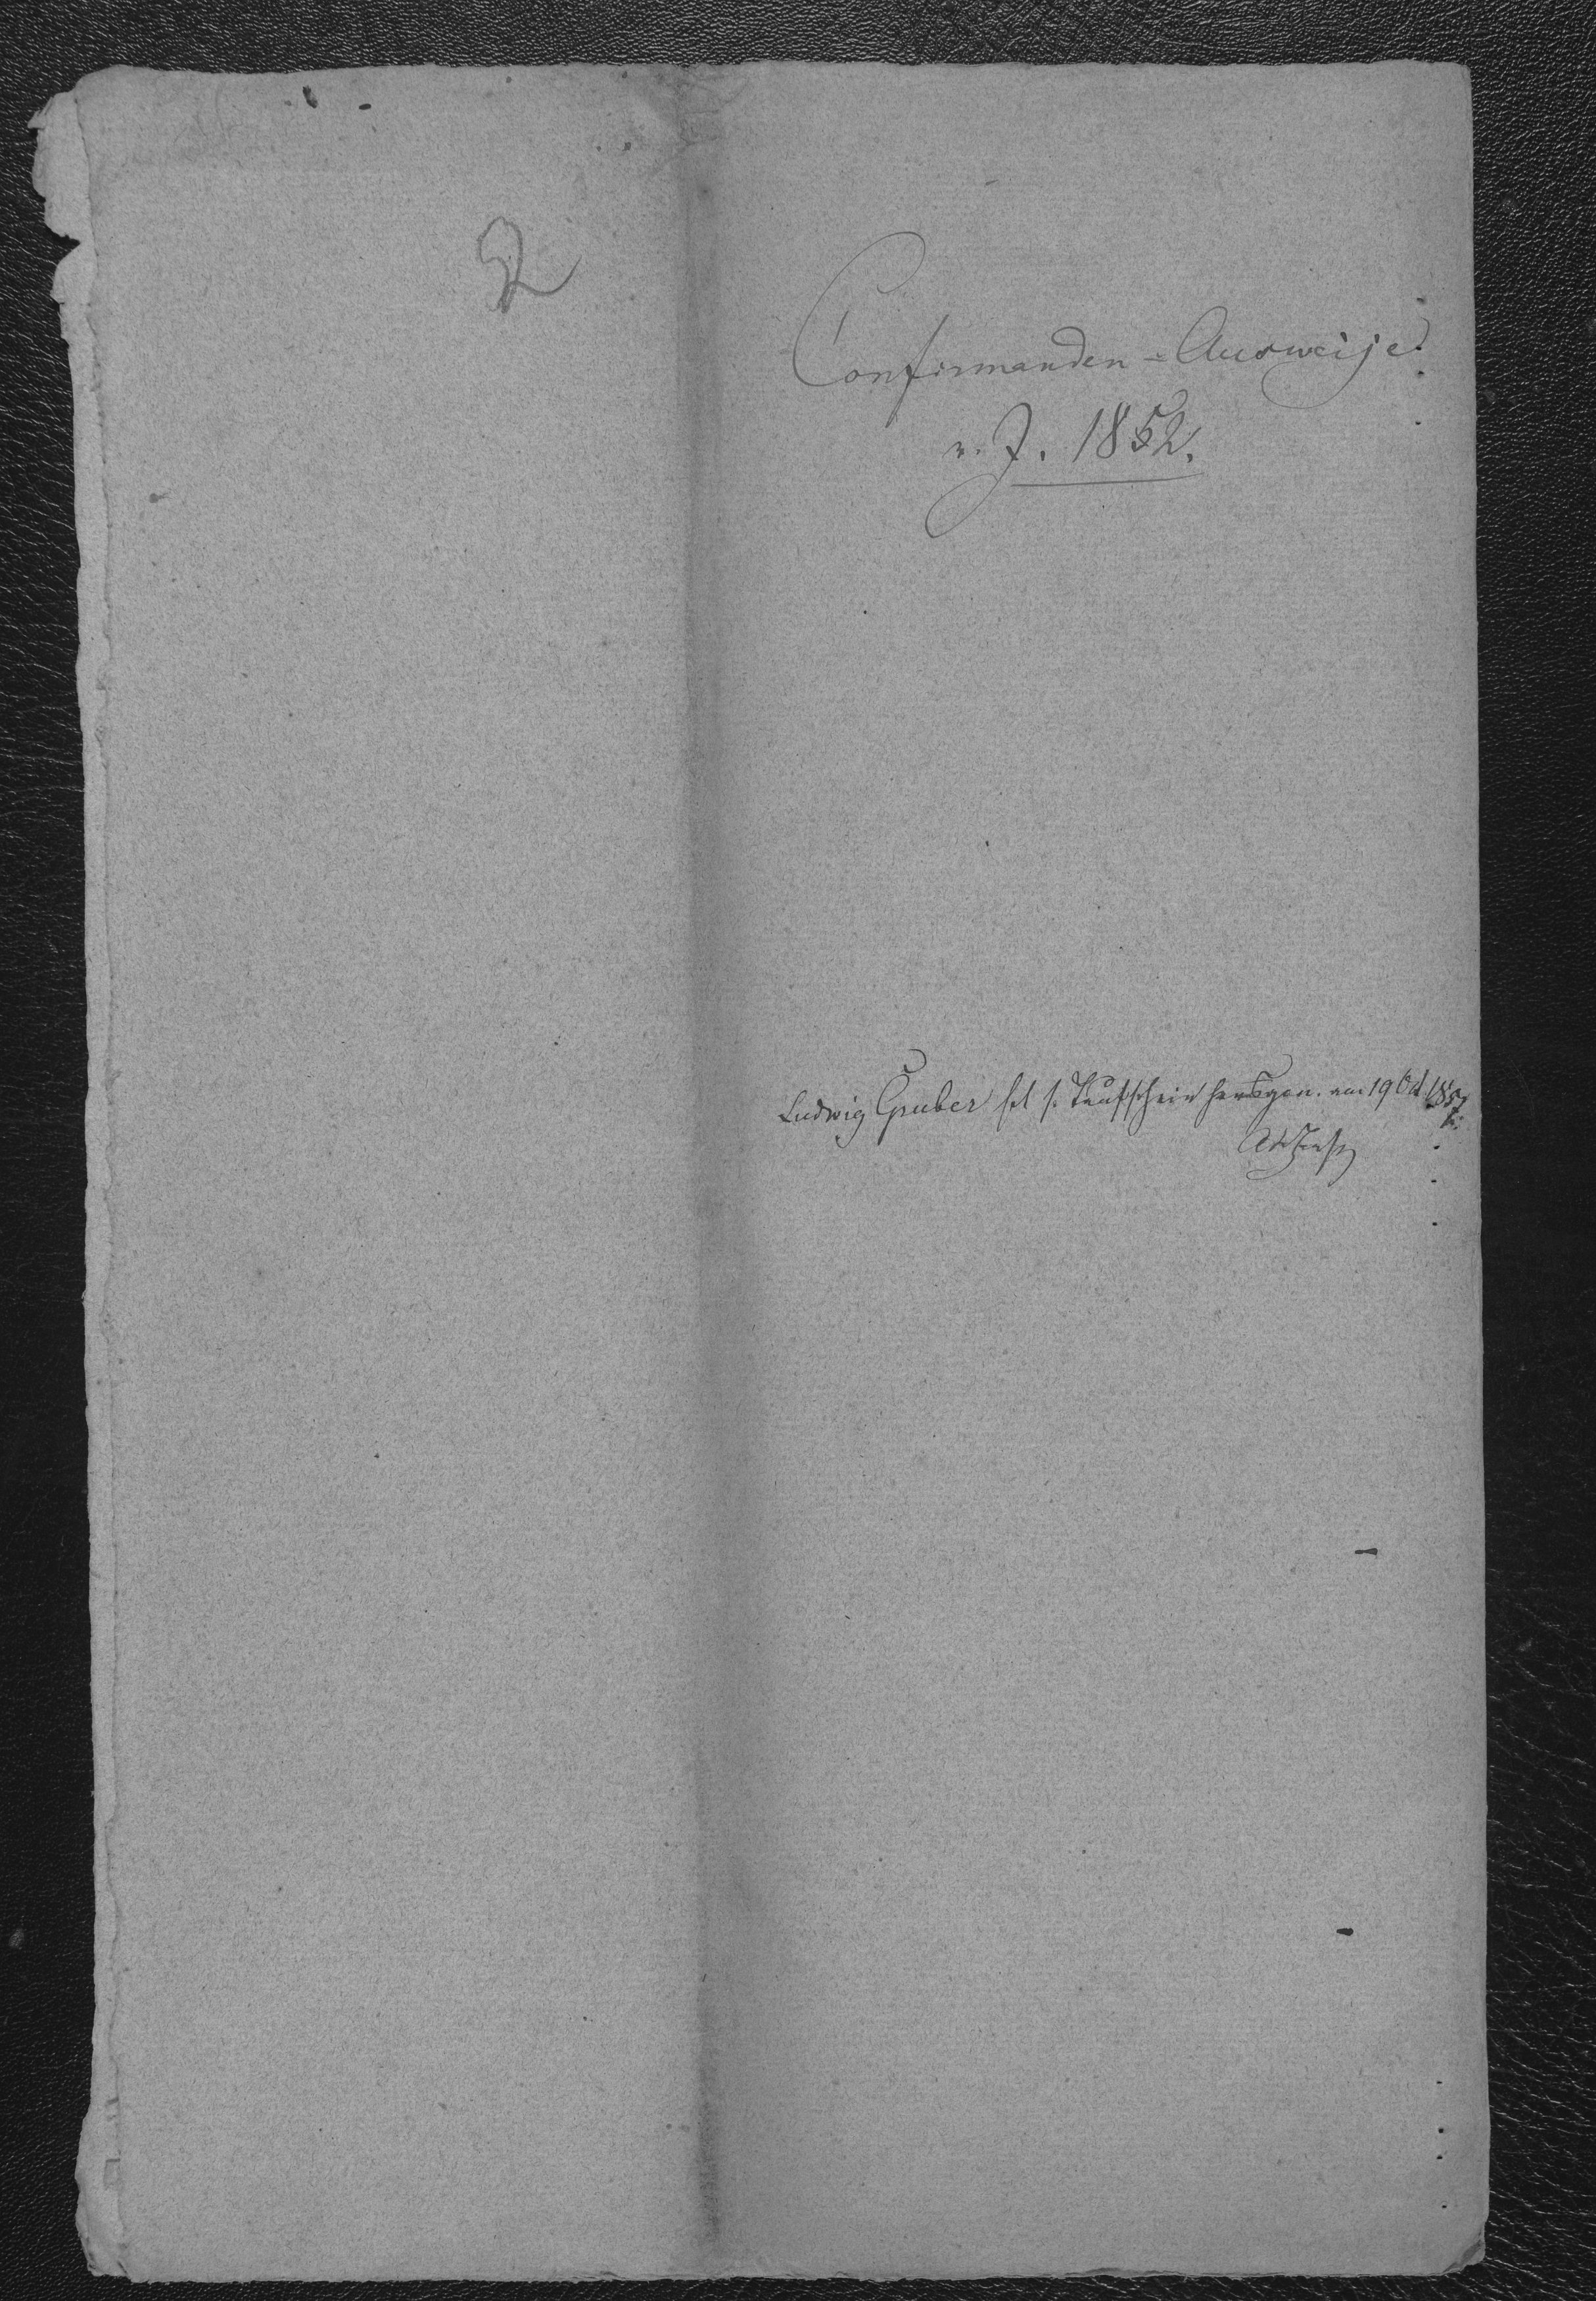 2
Confirmanden-Ausweise
v. J. 1852.
Ludwig Gruber hat s. Taufschein am 19 Oct 185